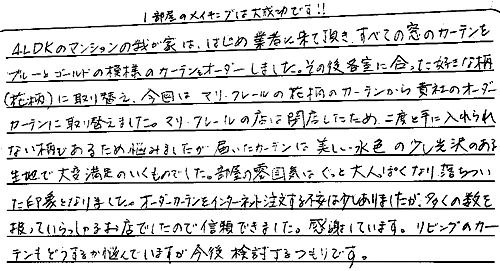 1部屋のメイキングは大成功です!!
4LDKのマンションの我が家は、はじめ業者に来て頂き、すべての窓のカーテンを
ブルーとゴールドの模様のカーテンをオーダーしました。その後各室に合った好きな柄
(花柄)に取り替え、今回はマリ・クレールの花柄のカーテンから貴社のオーダー
カーテンに取り替えました。マリ・クレールの店は閉店したため、二度と手に入れられ
ない柄であるため悩みましたが届いたカーテンは美しい水色の少し光沢のある
生地で大変満足のいくものでした。部屋の雰囲気はぐっと大人っぽくなり、落ちつい
た印象となりました。オーダーカーテンをインターネット注文する不安は少しありましたが、多くの数を
扱っていらっしゃるお店でしたので信頼できました。感謝しています。リビングのカー
テンもどうするか悩んでいますが今後検討するつもりです。